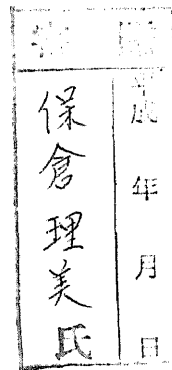 平成 年 月 日
保倉理美氏